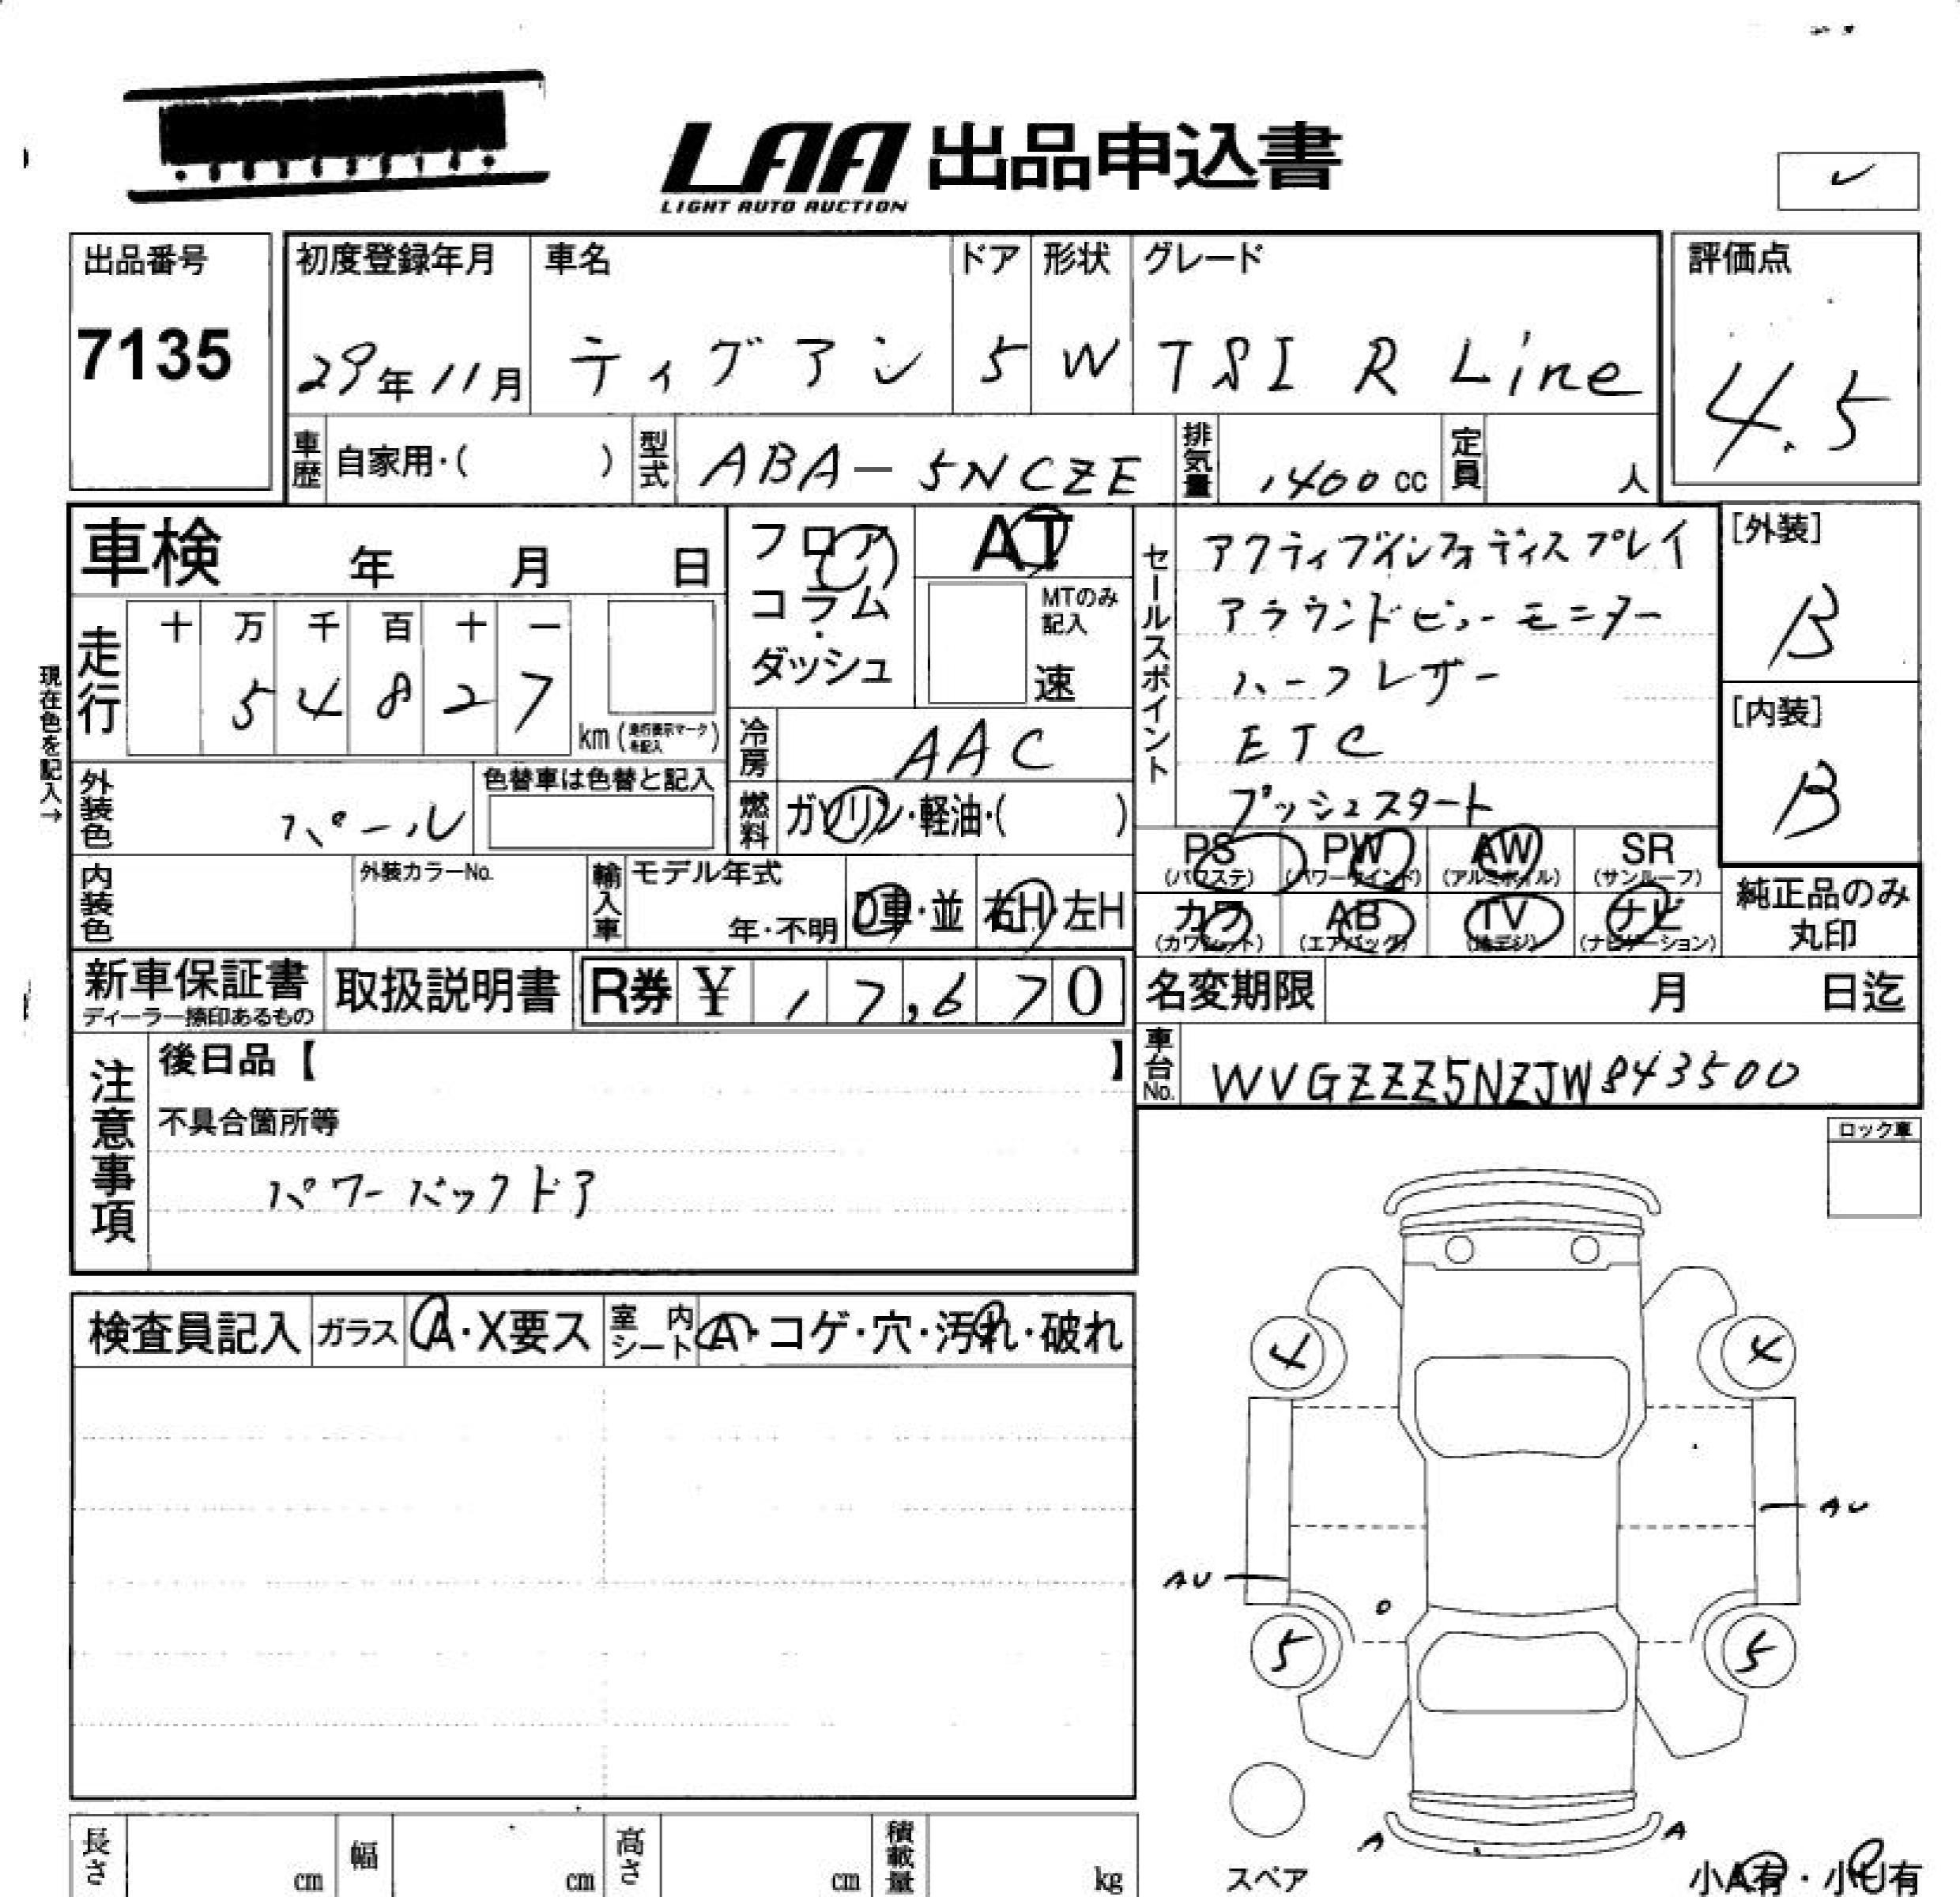 LAA 出品申込書
LIGHT AUTO AUCTION
出品番号
7135
初度登録年月
29年11月
車名
ティグアン
ドア
5
形状
W
グレード
TSI R Line
評価点
4.5
車歴 自家用・( )
型式 ABA-5NCZE
排気量 1400 cc
定員 人
車検 年 月 日
走行
十 万 千 百 十 一
5 4 8 2 7
km (走行表示マークを記入)
現在色を記入→
外装色 パール
色替車は色替と記入
フロア
コラム
ダッシュ
AT
MTのみ記入
速
冷房 AAC
燃料 ガソリン・軽油・( )
セールスポイント
アクティブインフォディスプレイ
アラウンドビューモニター
ハーフレザー
ETC
プッシュスタート
[外装]
B
[内装]
B
内装色
外装カラーNo.
輸入車
モデル年式
年・不明
D車・並
右H・左H
PS PW AW SR
(パワステ) (パワーウインド) (アルミホイル) (サンルーフ)
カワ AB TV ナビ
(カワシート) (エアバッグ) (地デジ) (ナビゲーション)
純正品のみ
丸印
新車保証書
ディーラー捺印あるもの
取扱説明書
R券 ¥ 17,670
名変期限 月 日迄
車台No. WVGZZZ5NZJW843500
注意事項
後日品【 】
不具合箇所等
パワーバックドア
ロック車
検査員記入
ガラス A・X要ス
室内シート A・コゲ・穴・汚れ・破れ
4 4
AU
AU
5 5
A A
スペア
小A有・小U有
長さ cm
幅 cm
高さ cm
積載量 kg